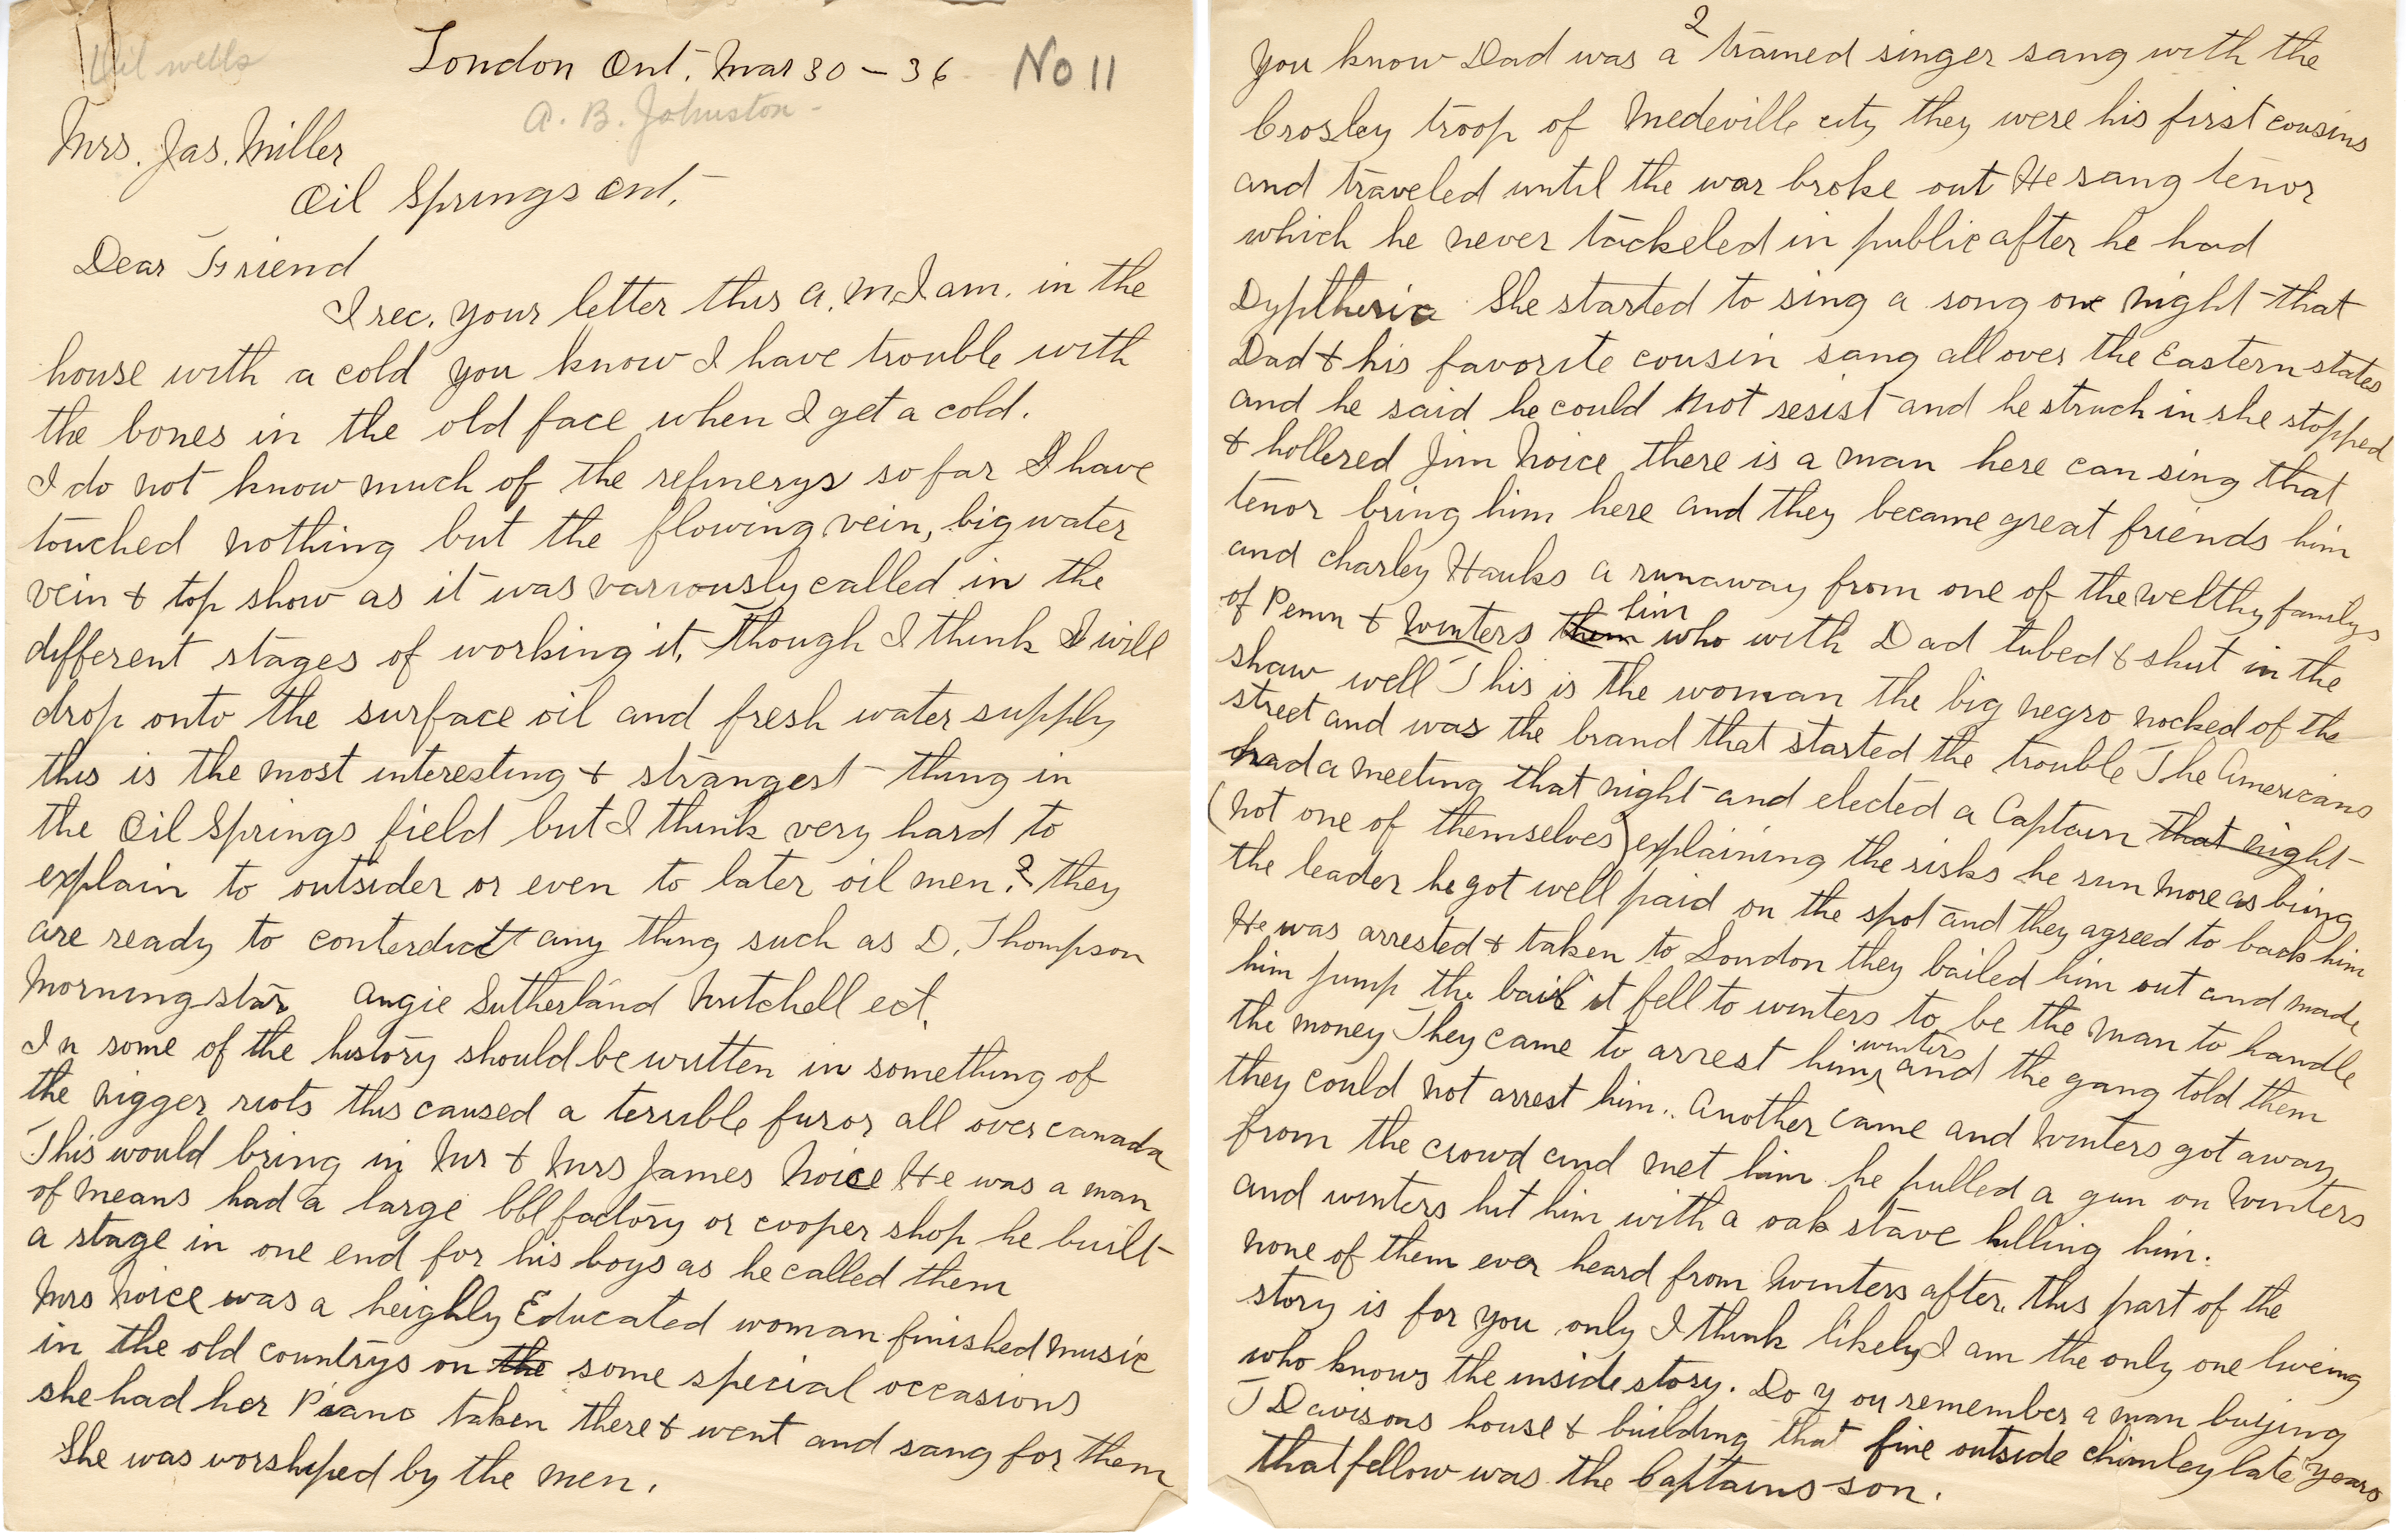 Oil wells
London Ont. Mar 30 - 36 No 11
A. B. Johnston -
Mrs. Jas. Miller
Oil Springs Ont.
Dear Friend
I rec. your letter this a.m I am. in the
house with a cold you know I have trouble with
the bones in the old face when I get a cold.
I do not know much of the refinerys so far I have
touched nothing but the flowing vein, big water
vein & top show as it was variously called in the
different stages of working it, Though I think I will
drop onto the surface oil and fresh water supply
this is the most interesting & strangest thing in
the Oil Springs field but I think very hard to
explain to outsider or even to later oil men.? they
are ready to conterdict any thing such as D. Thompson
Morningstar Angie Sutherland Mitchell ect.
In some of the history should be written in something of
the nigger riots this caused a terrible furor all over canada
This would bring in Mr & Mrs James Noice He was a man
of means had a large bbl factory or cooper shop he built
a stage in one end for his boys as he called them
Mrs Noice was a heighly Educated woman finished music
in the old countrys on the some special occasions
she had her Piano taken there & went and sang for them
She was worshiped by the men.
2
You know Dad was a trained singer sang with the
Crosley troop of Medeville city they were his first cousins
and traveled until the war broke out He sang tenor
which he never tackeled in public after he had
Dyptheria She started to sing a song one night that
Dad & his favorite cousin sang all over the Eastern states
and he said he could not resist and he struck in she stopped
& hollered Jim Noice there is a man here can sing that
tenor bring him here and they became great friends him
and charley Hanks a runaway from one of the welthy familys
of Penn & Winters them him who with Dad tubed & shut in the
shaw well This is the woman the big negro nocked of the
street and was the brand that started the trouble The Americans
had a meeting that night and elected a Captain that night
(not one of themselves) explaining the risks he run more as being
the leader he got well paid on the spot and they agreed to back him
He was arrested & taken to London they bailed him out and made
him jump the bail it fell to winters to be the man to handle
the money They came to arrest him winters and the gang told them
they could not arrest him.. Another came and Winters got away
from the crowd and met him he pulled a gun on Winters
and winters hit him with a oak stave killing him.
none of them ever heard from Winters after, this part of the
story is for you only I think likely I am the only one liveing
who knows the inside story. Do you remember a man buying
J Davisons house & building that fine outside chimley late years
that fellow was the Captains son.